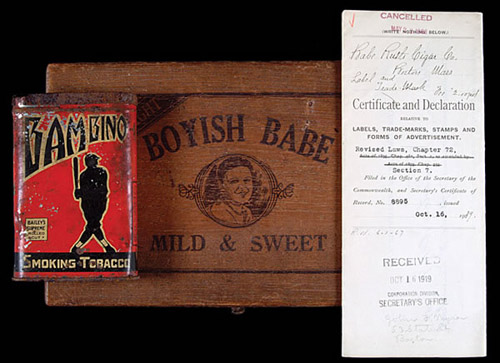 BAMBINO
BAILEY'S
SUPREME
SMOKING TOBACCO
BOYISH BABE
MILD & SWEET
CANCELLED
(WRITE NOTHING BELOW)
Babe Ruth Cigar Co.
Label and
Trade Mark
Certificate and Declaration
RELATIVE TO
LABELS, TRADE-MARKS, STAMPS AND
FORMS OF ADVERTISEMENT.
Revised Laws, Chapter 72,
Section 7.
Filed in the Office of the Secretary of the
Commonwealth, and Secretary's Certificate of
Record, No. 6695, issued
Oct. 16, 19
RECEIVED
OCT 16 1919
CORPORATION DIVISION,
SECRETARY'S OFFICE
Boston